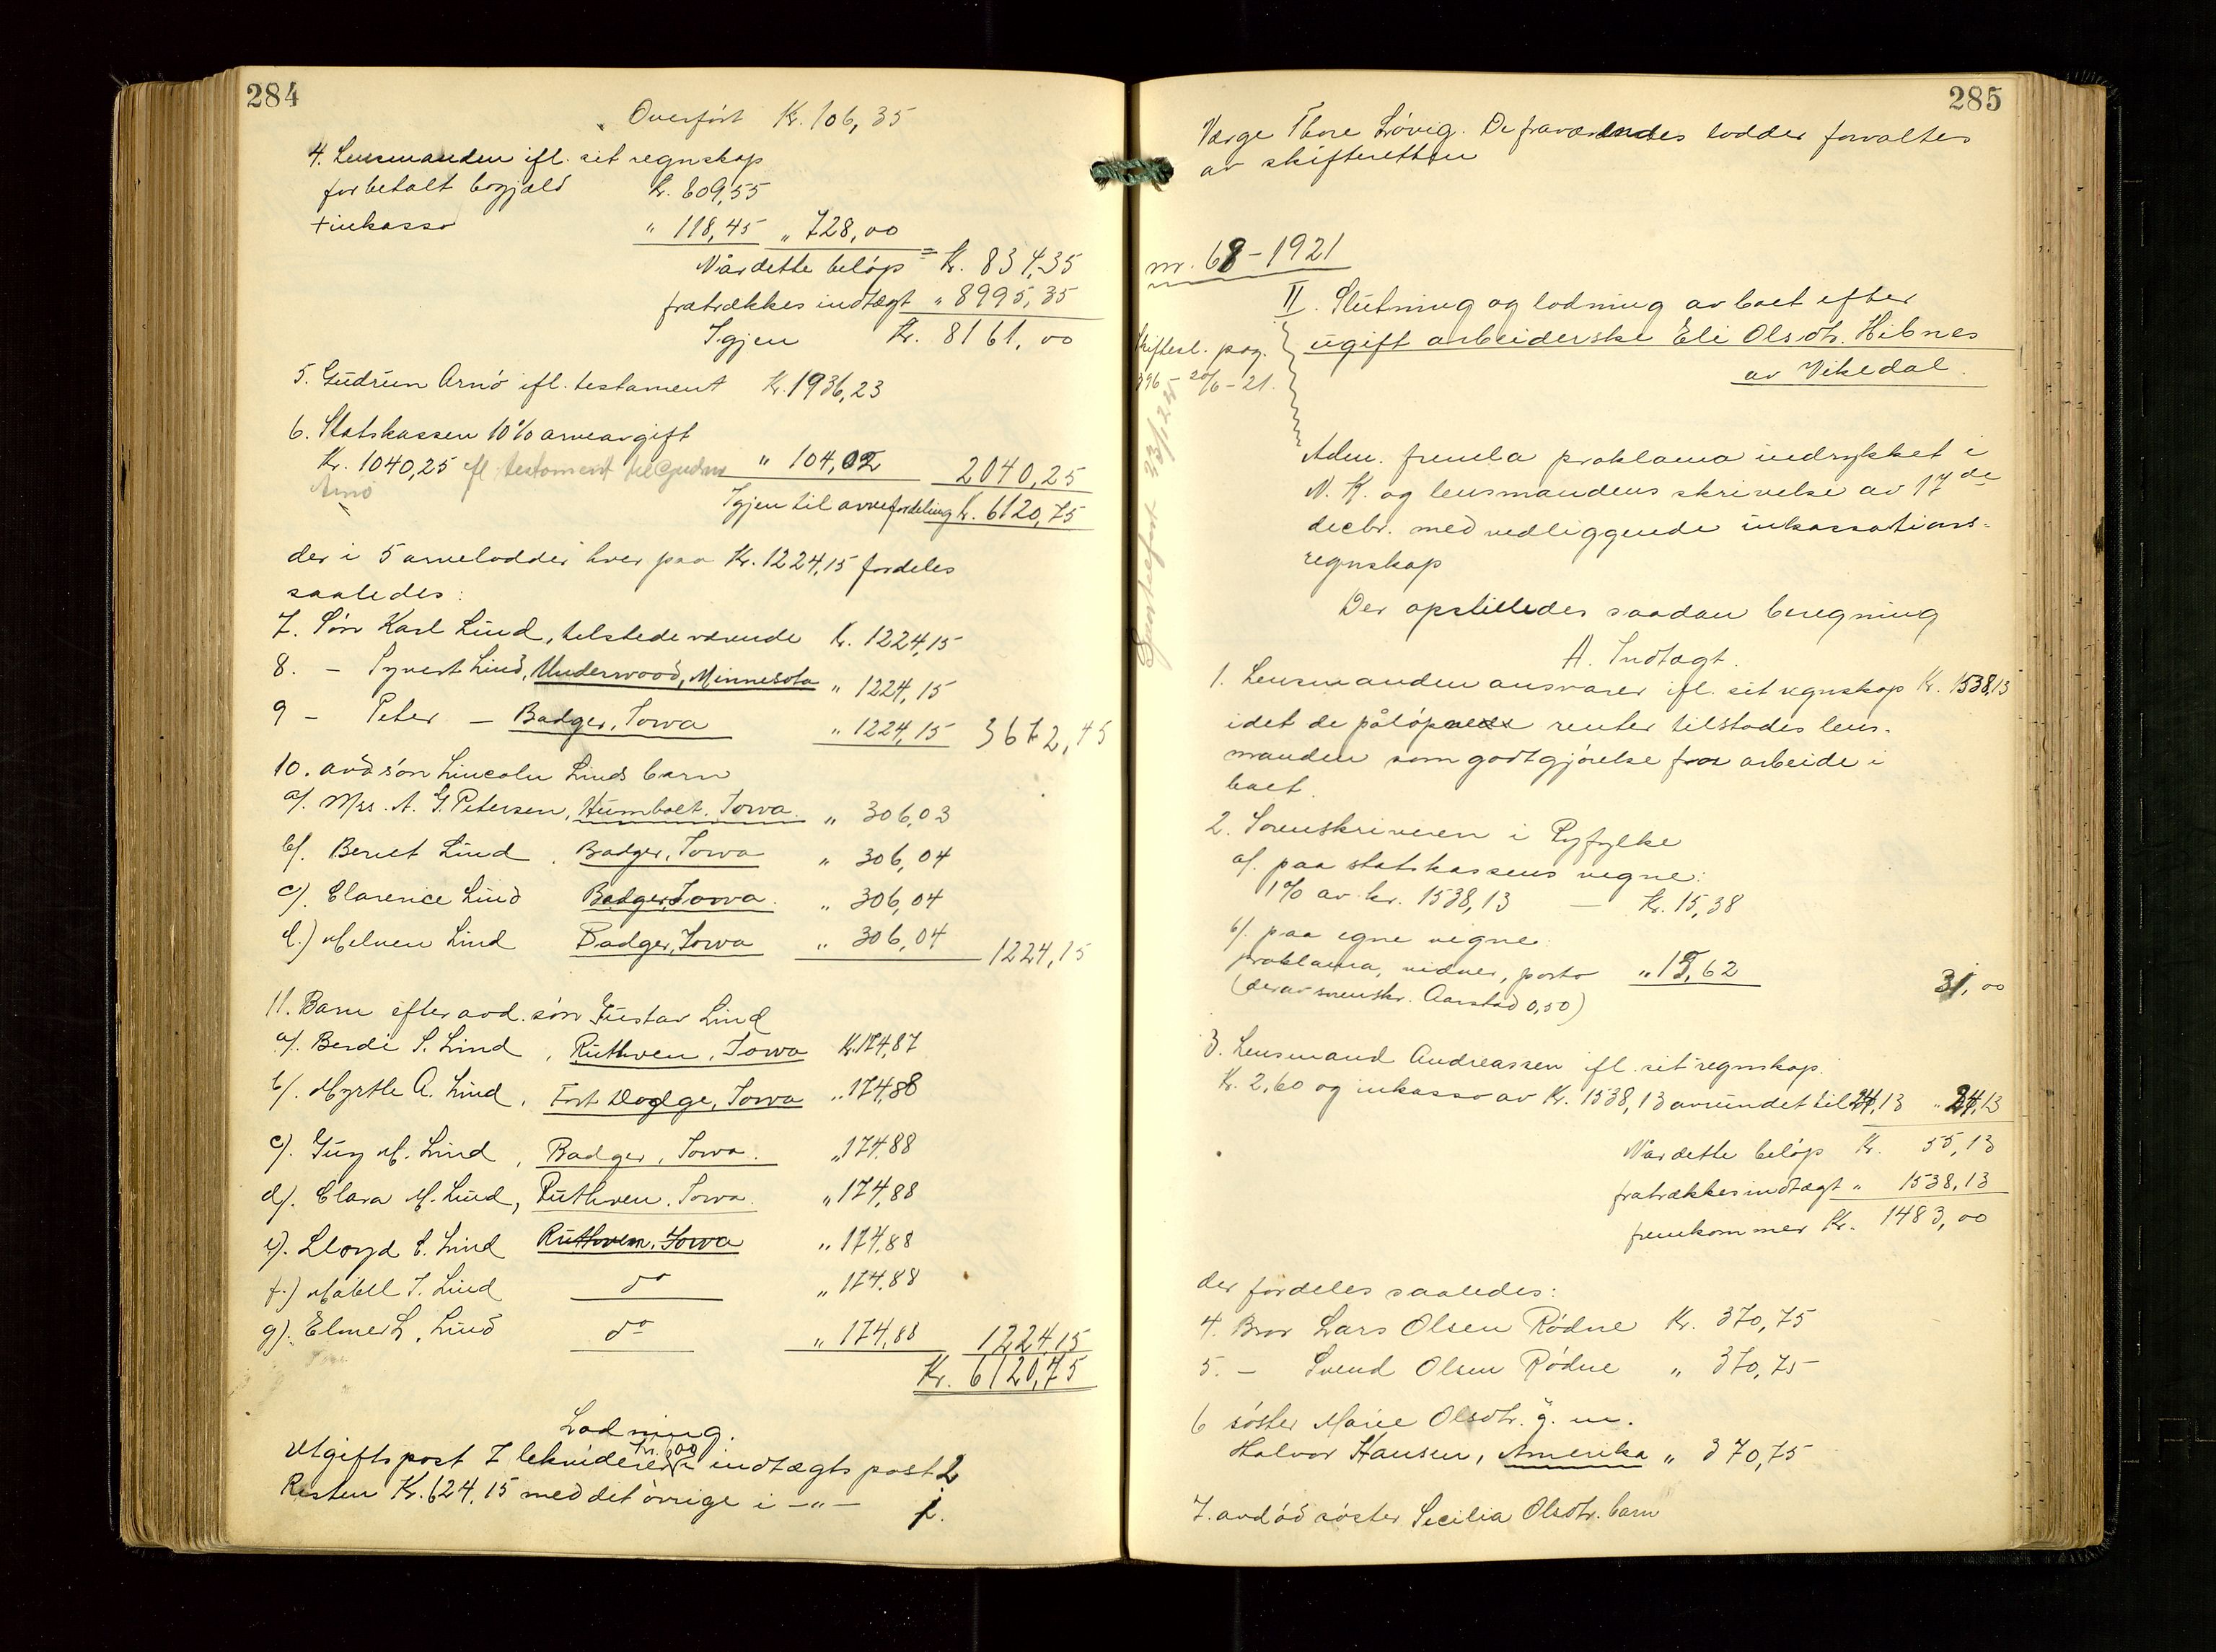 284
Overført Kr. 106,35
4. Lensmanden ifl. sit regnskap
for betalt bogjæld Kr. 609,55
+ inkasso " 118,45 " 728,00
Når dette beløp = Kr. 834,35
fratrækkes indtægt " 8995,35
Igjen Kr. 8161,00
5. Gudrun Arnø ifl. testament Kr. 1936,23
6. Statskassen 10% arveavgift
Kr. 1040,25 ifl testament til Gudrun " 104,02 2040,25
Arnø
Igjen til arvefordeling kr. 6120,75
der i 5 arvelodder hver paa Kr. 1224,15 fordeles
saaledes:
7. Søn Karl Lind, tilstedeværende Kr. 1224,15
8. - Syvert Lind, Underwood, Minnesota " 1224,15
9 - Peter - Badger, Iowa " 1224,15 3672,45
10. avd søn Lincoln Linds barn
a/. Mrs. A. G. Petersen, Humbolt. Iowa. " 306,03
b/. Beriet Lind, Badger, Iowa " 306,04
c/. Clarence Lind Badger, Iowa. " 306,04
d.) Melven Lind Badger, Iowa " 306,04 1224,15
11. Barn efter avd. søn Gustav Lind
a/. Berdi S. Lind, Ruthven, Iowa Kr. 174,87
b/. Myrtle A. Lind, Fort Dodge, Iowa " 174,88
c/. Guy M. Lind, Badger, Iowa. " 174,88
d/. Clara M. Lind, Ruthven, Iowa. " 174,88
e/. Lloyd C. Lind Ruthven, Iowa " 174,88
f.) Mabell I. Lind do " 174,88
g). Elmer L. Lind do " 174,88 1224,15
Kr. 6120,75
Lodning.
Utgiftspost 7 lekvideres i indtægts post 2
Resten Kr. 624,15 med det øvrige i -"- 1.
285
Værge Thore Løvig. De fraværendes lodder forvaltes
av skifteretten
nr. 68-1921
II. Slutning og lodning av boet efter
ugift arbeiderske Eli Olsdtr. Hibnes
av Vikedal.
Skiftesl. pag.
396 - 20/6-21.
23/1 24
Adm. fremla proklama indrykket i
N. K. og lensmandens skrivelse av 17de
decbr. med vedliggende inkassations-
regnskap
Der opstilledes saadan beregning
A. Indtægt.
1. Lensmanden ansvarer ifl. sit regnskap Kr. 1538,13
idet de påløpne renter tilstodes lens-
manden som godtgjørelse for arbeide i
boet.
2. Sorenskriveren i Ryfylke
a/. paa statskassens vegne:
1% av kr. 1538,13 - Kr. 15,38
b/. paa egne vegne:
proklama, vidner, porto " 15,62
(derav sorenskr. Aarstad 0,50) 31,00
3. Lensmand Andreassen ifl. sit regnskap.
Kr. 2,60 og inkasso av Kr. 1538,13 avrundet til 24,13 " 24,13
Når dette beløp Kr. 55,13
fratrækkes indtægt " 1538,13
fremkommer Kr. 1483,00
der fordeles saaledes:
4. Bror Lars Olsen Rødne Kr. 370,75
5. - Svend Olsen Rødne " 370,75
6 søster Marie Olsdtr. g. m.
Halvor Hansen, Amerika " 370,75
7. avdød søster Secilia Olsdtr. barn